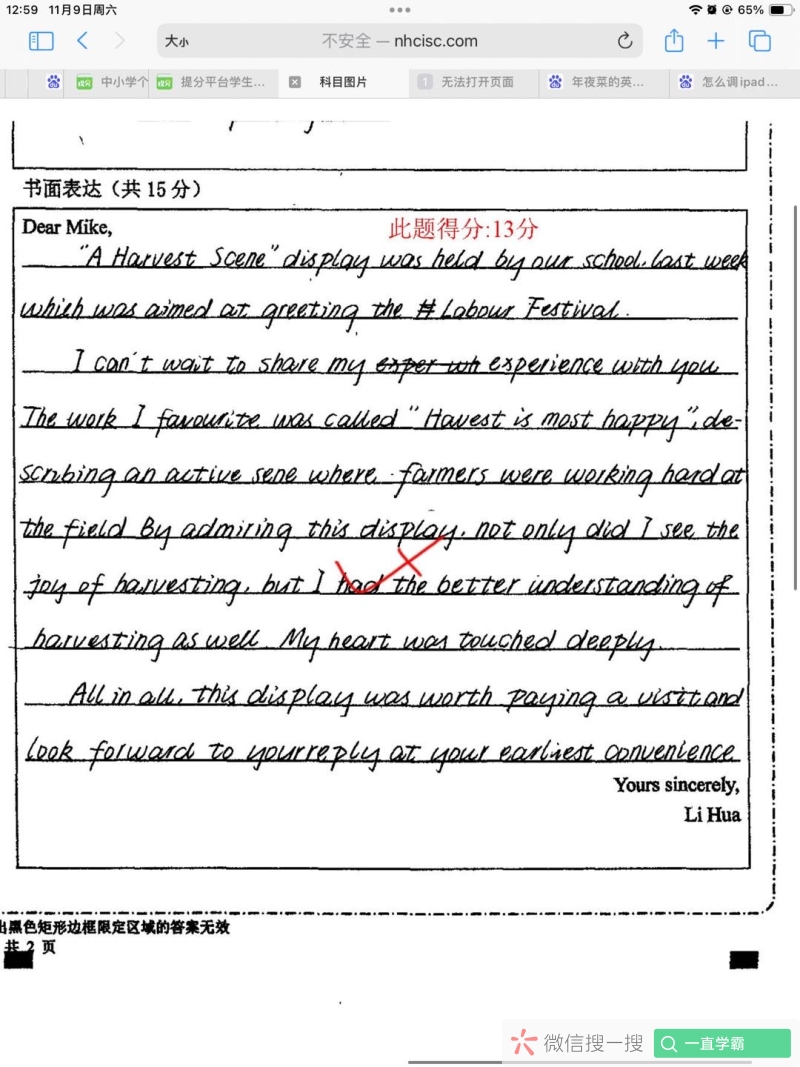 12:59 11月9日周六
65%
大小
不安全 — nhcisc.com
中小学个
提分平台学生...
科目图片
1 无法打开页面
年夜菜的英...
怎么调ipad...
书面表达（共 15 分）
Dear Mike,
此题得分:13分
"A Harvest Scene" display was held by our school. last week
which was aimed at greeting the Labour Festival.
I can't wait to share my exper wh experience with you
The work I favourite was called "Havest is most happy", de-
scribing an active sene where farmers were working hard at
the field By admiring this display, not only did I see the
joy of harvesting, but I had the better understanding of
harvesting as well. My heart was touched deeply.
All in all, this display was worth paying a visit and
look forward to your reply at your earliest convenience
Yours sincerely,
Li Hua
出黑色矩形边框限定区域的答案无效
共 2 页
微信搜一搜
一直学霸